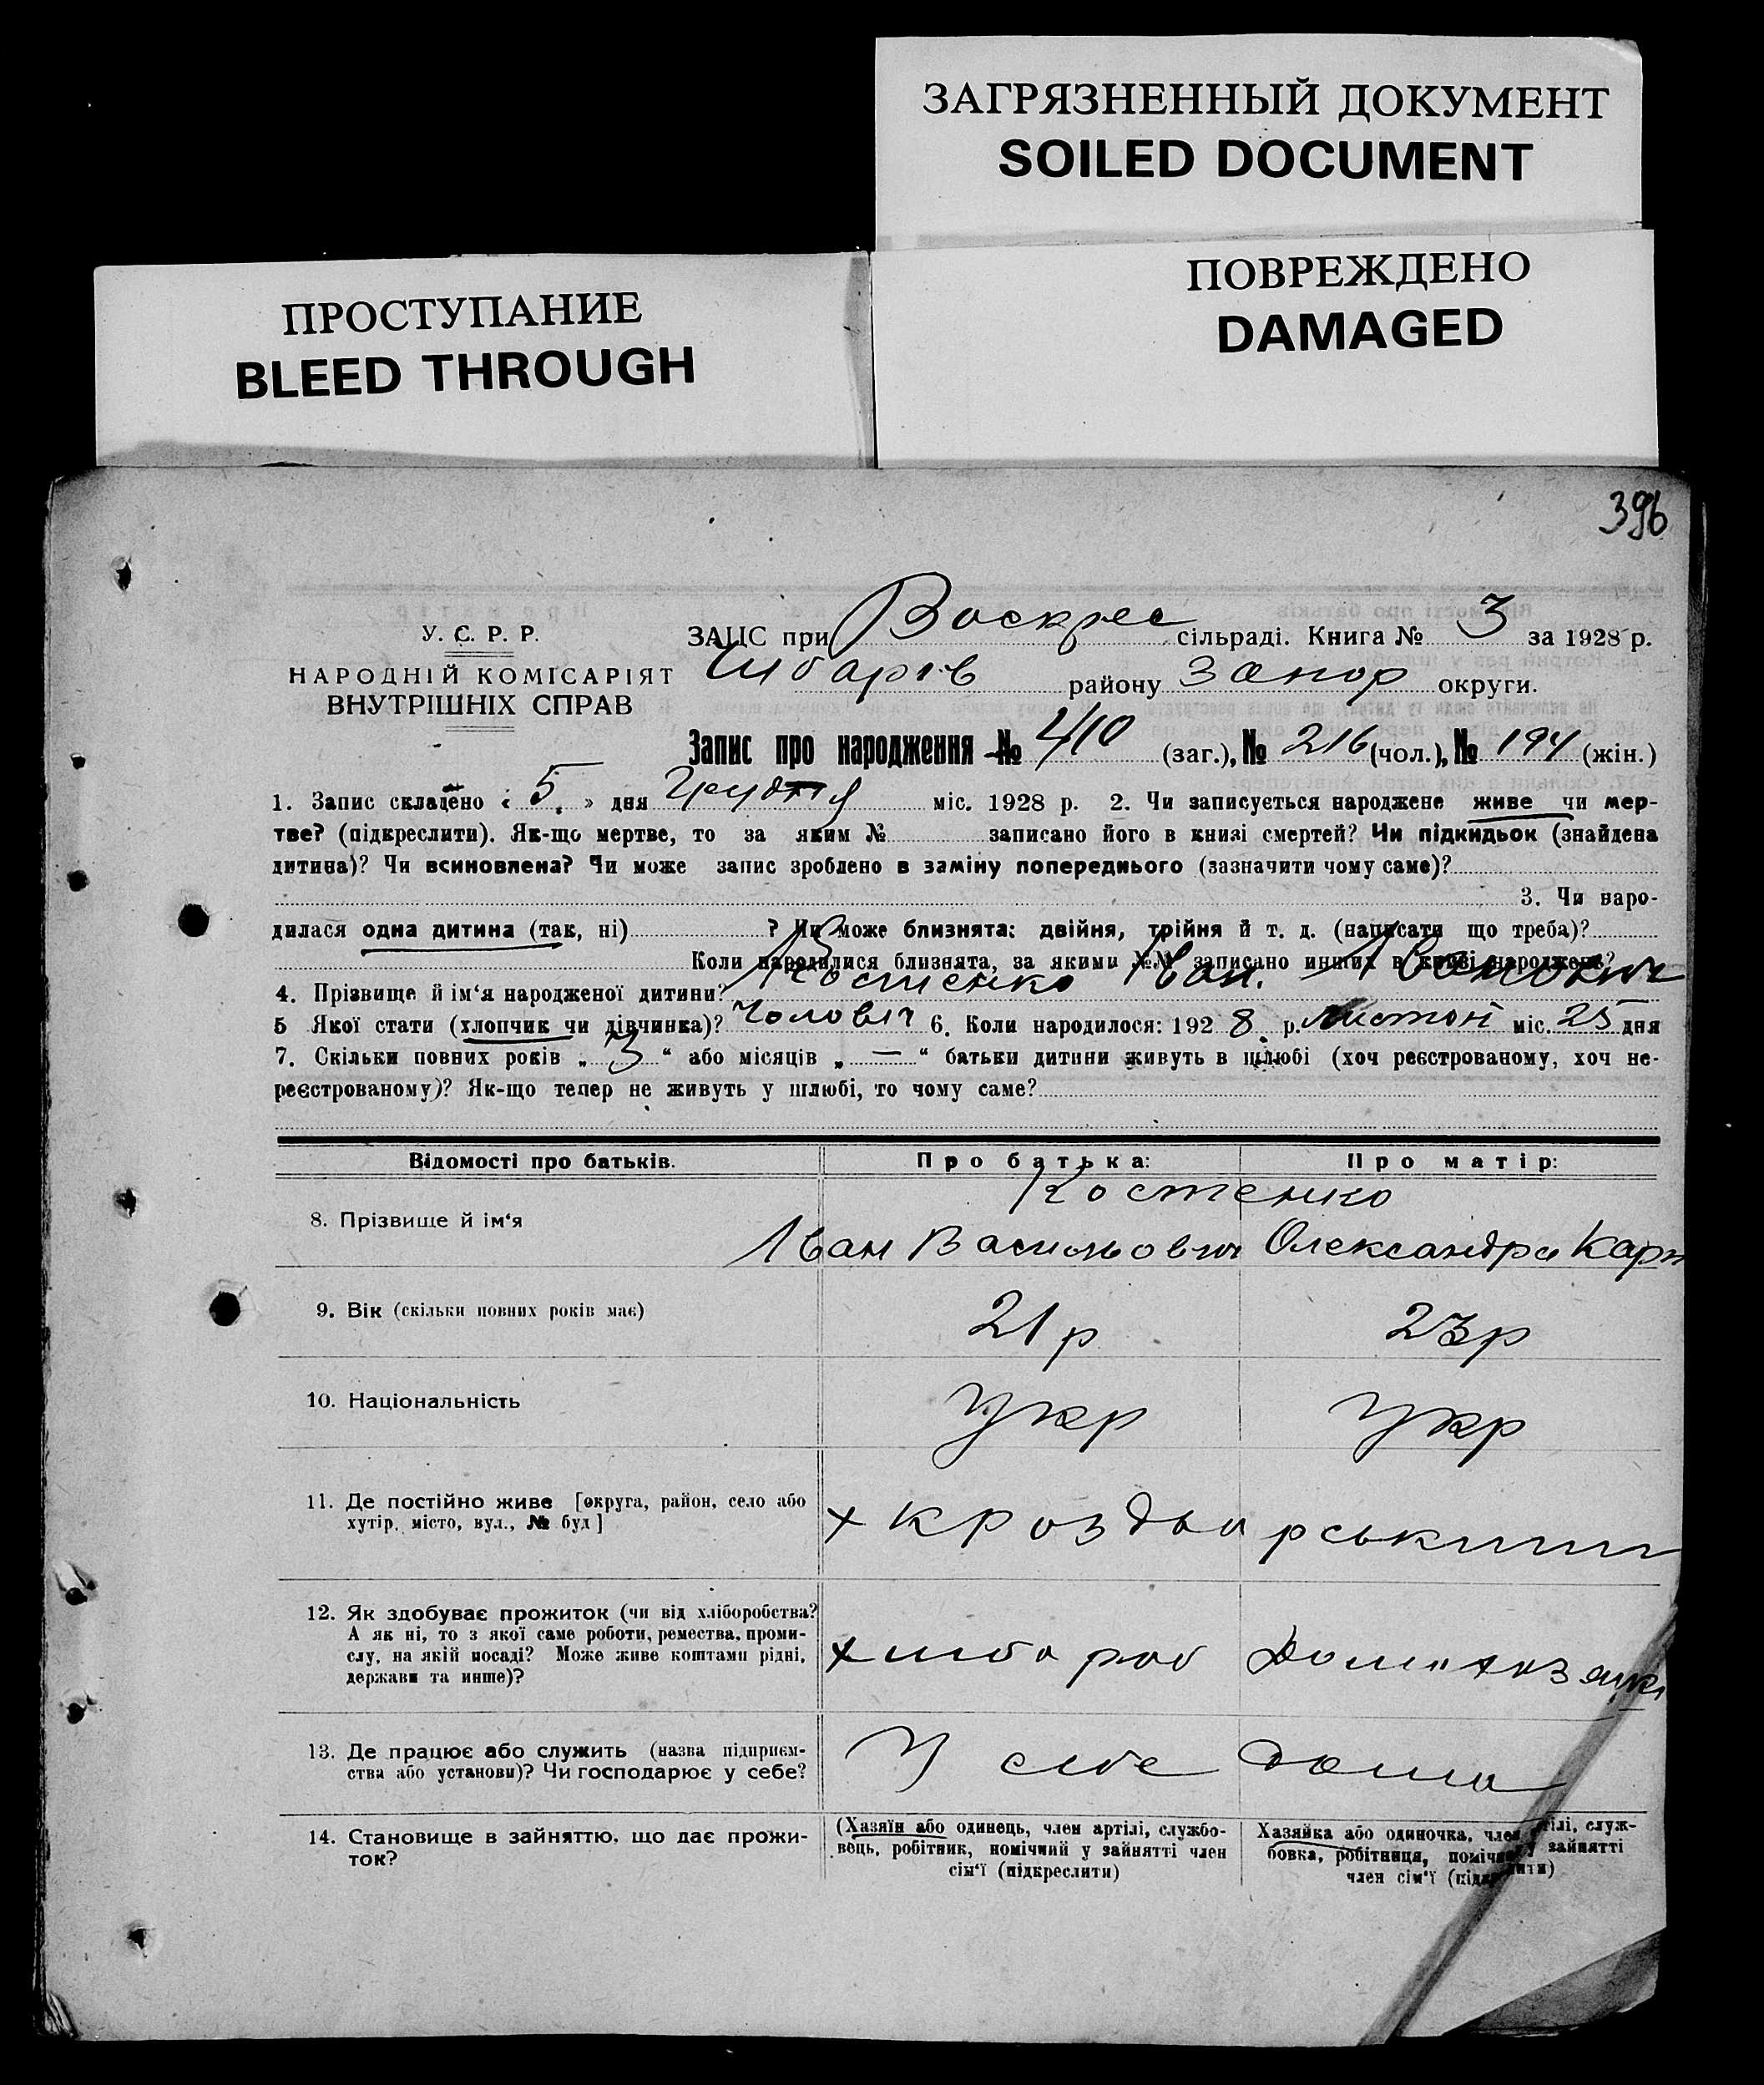 ЗАГРЯЗНЕННЫЙ ДОКУМЕНТ
SOILED DOCUMENT
ПРОСТУПАНИЕ
BLEED THROUGH
ПОВРЕЖДЕНО
DAMAGED
396
У. С. Р. Р.
НАРОДНІЙ КОМІСАРІЯТ
ВНУТРІШНІХ СПРАВ
ЗАЦС при Воскрес сільраді. Книга № 3 за 1928 р.
району Запор округи.
Запис про народження № 410 (заг.), № 216 (чол.), № 194 (жін.)
1. Запис складено « 5 » дня Грудня міс. 1928 р. 2. Чи записується народжене живе чи мер-
тве? (підкреслити). Як-що мертве, то за яким № записано його в книзі смертей? Чи підкидьок (знайдена
дитина)? Чи всиновлена? Чи може запис зроблено в заміну попереднього (зазначити чому саме)?
3. Чи наро-
дилася одна дитина (так, ні) ? Чи може близнята: двійня, трійня й т. д. (написати що треба)?
Коли народилися близнята, за якими №№ записано инших в книзі народжень?
4. Прізвище й ім‘я народженої дитини? Костенко Іван Іванович
5 Якої стати (хлопчик чи дівчинка)? Чоловіч 6. Коли народилося: 1928 р. Листоп міс. 25 дня
7. Скільки повних років „ 3 “ або місяців „ — “ батьки дитини живуть в шлюбі (хоч реєстрованому, хоч не-
реєстрованому)? Як-що тепер не живуть у шлюбі, то чому саме?
Відомості про батьків. Про батька: Про матір:
Костенко
8. Прізвище й ім‘я Іван Васильович Олександра Карп
9. Вік (скільки повних років має) 21 р 23 р
10. Національність Укр Укр
11. Де постійно живе [округа, район, село або
хутір, місто, вул., № буд]
12. Як здобуває прожиток (чи від хліборобства?
А як ні, то з якої саме роботи, ремества, проми-
слу, на якій посаді? Може живе коштами рідні,
держави та инше)?
хлібороб
13. Де працює або служить (назва підприєм-
ства або установи)? Чи господарює у себе?
У себе дома
14. Становище в зайняттю, що дає прожи-
ток?
(Хазяїн або одинець, член артілі, службо-
вець, робітник, помічний у зайнятті член
сім‘ї (підкреслити)
Хазяйка або одиночка, член артілі, служ-
бовка, робітниця, помічна у зайнятті
член сім‘ї (підкреслити)